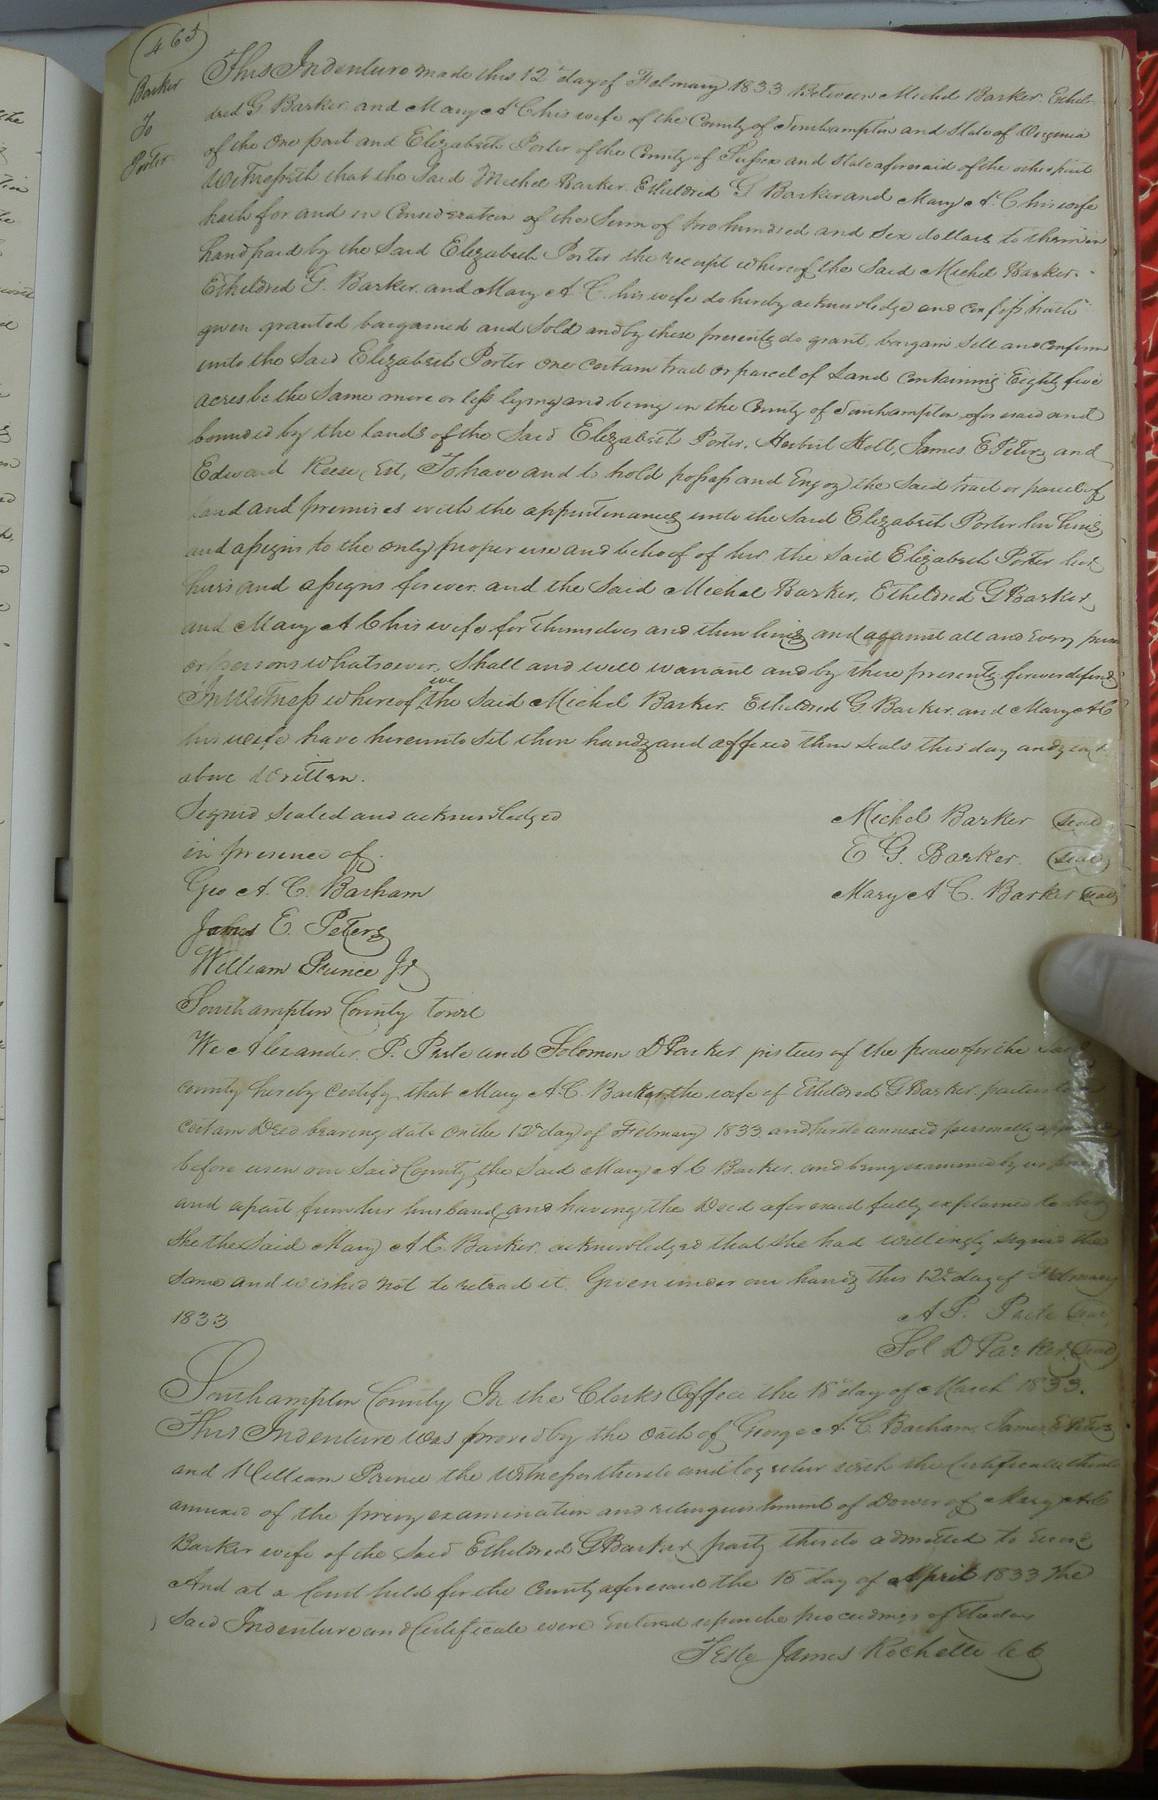 463
Barker
To
Porter
This Indenture made this 12th day of February 1833 Between Michel Barker Etheld-
dred G Barker and Mary A C his wife of the County of Southampton and State of Virginia
of the One part and Elizabeth Porter of the County of Sussex and State aforesaid of the other part
Witnesseth that the Said Michel Barker Etheldred G Barker and Mary A C his wife
hath for and in Consideration of the Sum of two hundred and Six dollars to them in
hand paid by the Said Elizabeth Porter the receipt whereof the Said Michel Barker
Etheldred G. Barker and Mary A C. his wife do hereby acknowledge and confess hath
given granted bargained and Sold and by these presents do grant, bargain Sell and confirm
unto the Said Elizabeth Porter one certain tract or parcel of Land Containing Eighty five
acres be the Same more or less lying and being in the County of Southampton aforesaid and
bounded by the lands of the Said Elizabeth Porter, Herbert Holt, James E Peters and
Edward Reese, Est, To have and to hold possess and Enjoy the Said tract or parcel of
Land and premises with the appurtenances unto the Said Elizabeth Porter her heirs
and assigns to the only proper use and behoof of her the Said Elizabeth Porter her
heirs and assigns forever and the Said Michel Barker, Etheldred G Barker
and Mary A C his wife for Themselves and their heirs and against all and Every person
or persons whatsoever, Shall and will warrant and by these presents forever defend
In Witness whereof we the Said Michel Barker Etheldred G. Barker and Mary A C
his wife have hereunto Set their hands and affixed their Seals this day and year
above Written.
Signed Sealed and acknowledged
in presence of
Geo A. C. Barham
James E. Peters
William Prince Jr
Michel Barker Seal
E G. Barker Seal
Mary A C. Barker Seal
Southampton County towit
We Alexander P. Peete and Solomon D Parker justices of the peace for the Said
county hereby certify that Mary A. C. Barker the wife of Etheldred G Barker parties to a
certain Deed bearing date on the 12th day of February 1833 and hereto annexed personally appeared
before us in our Said County the Said Mary A C Barker and being examined by us privily
and apart from her husband and having the Deed aforesaid fully explained to her
She the Said Mary A C. Barker acknowledged that She had willingly Signed the
Same and wished not to retract it. Given under our hands this 12th day of February
1833
A P. Peete Seal
Sol D Parker Seal
Southampton County In the Clerks Office the 18th day of March 1833.
This Indenture was proved by the oath of George A. C. Barham, James E Peters
and William Prince the Witnesses thereto and together with the Certificate thereto
annexed of the privy examination and relinquishment of Dower of Mary A C
Barker wife of the Said Etheldred G Barker party thereto admitted to record
And at a Court held for the County aforesaid the 15 day of April 1833 The
Said Indenture and Certificate were Entered upon the proceedings of Today
Teste James Rochelle CC